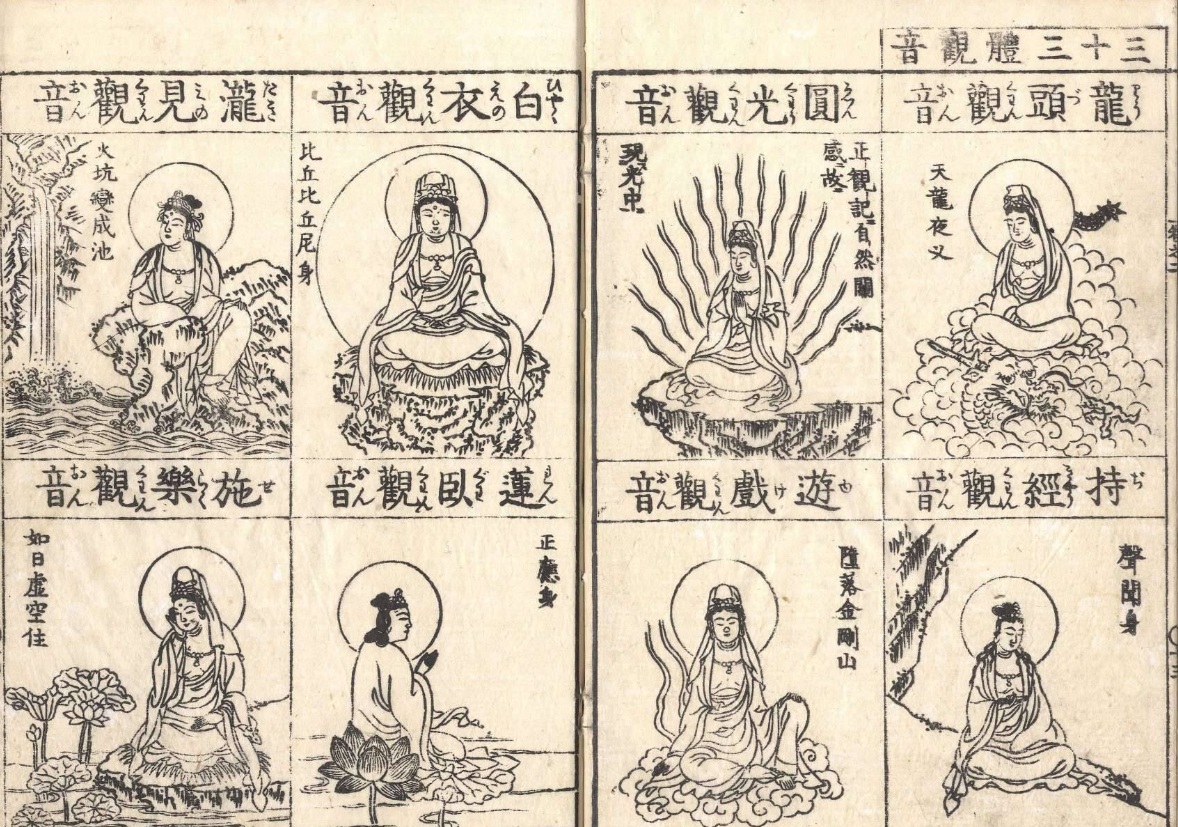 三十三體觀音
龍頭觀音
天龍夜叉
圓光觀音
正観記自然聞
感故
現光中
持經觀音
聲聞身
遊戲觀音
墮落金剛山
白衣觀音
比丘比丘尼身
瀧見觀音
火坑變成池
蓮臥觀音
施樂觀音
如日虛空住